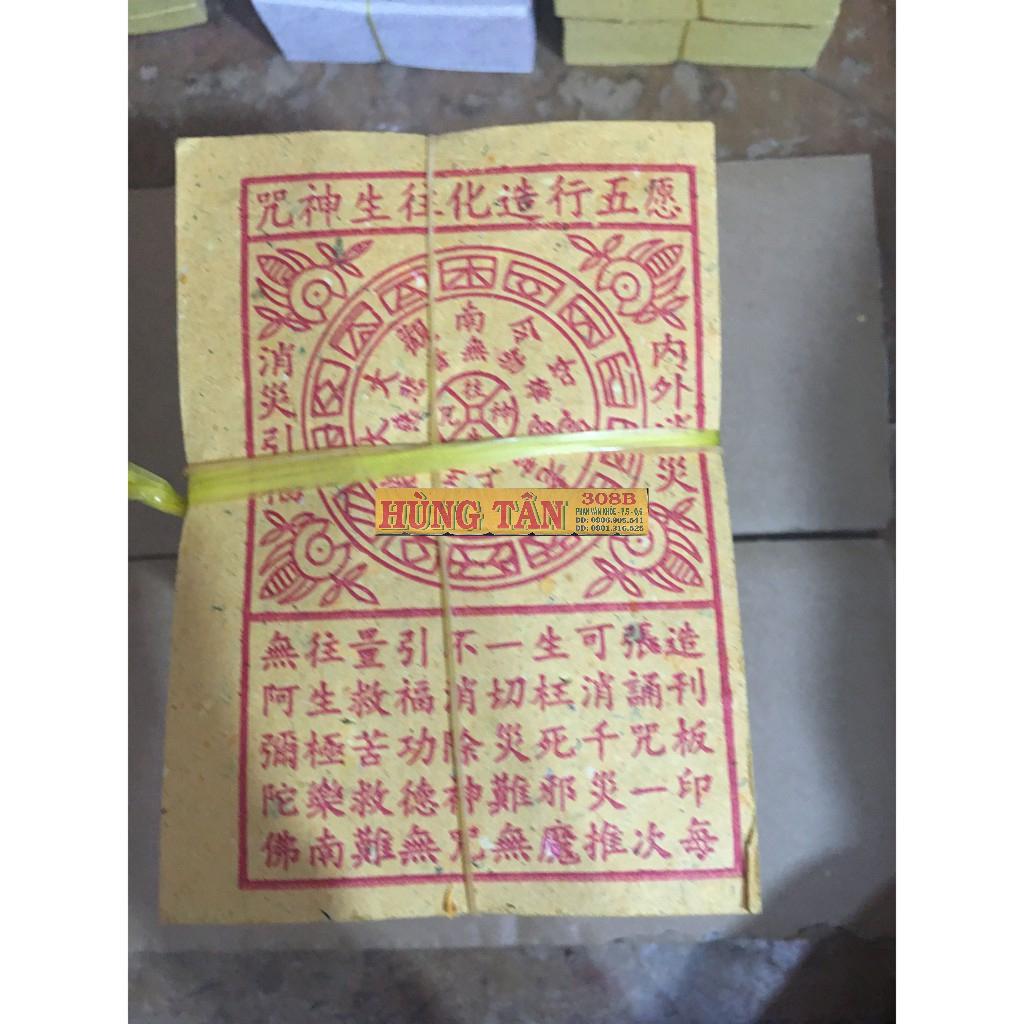 咒神生往化造行五愿
消災引
内外消災
南無
往
神
咒
HÙNG TÂN
308B
PHAN VĂN KHỎE - P,5 - Q,6
DD: 0906.905.541
DD: 0901.316.525
無往量引不一生可張造
阿生救福消切枉消誦刊
彌極苦功除災死千咒板
陀樂救德神難邪災一印
佛南難無咒無魔推次每